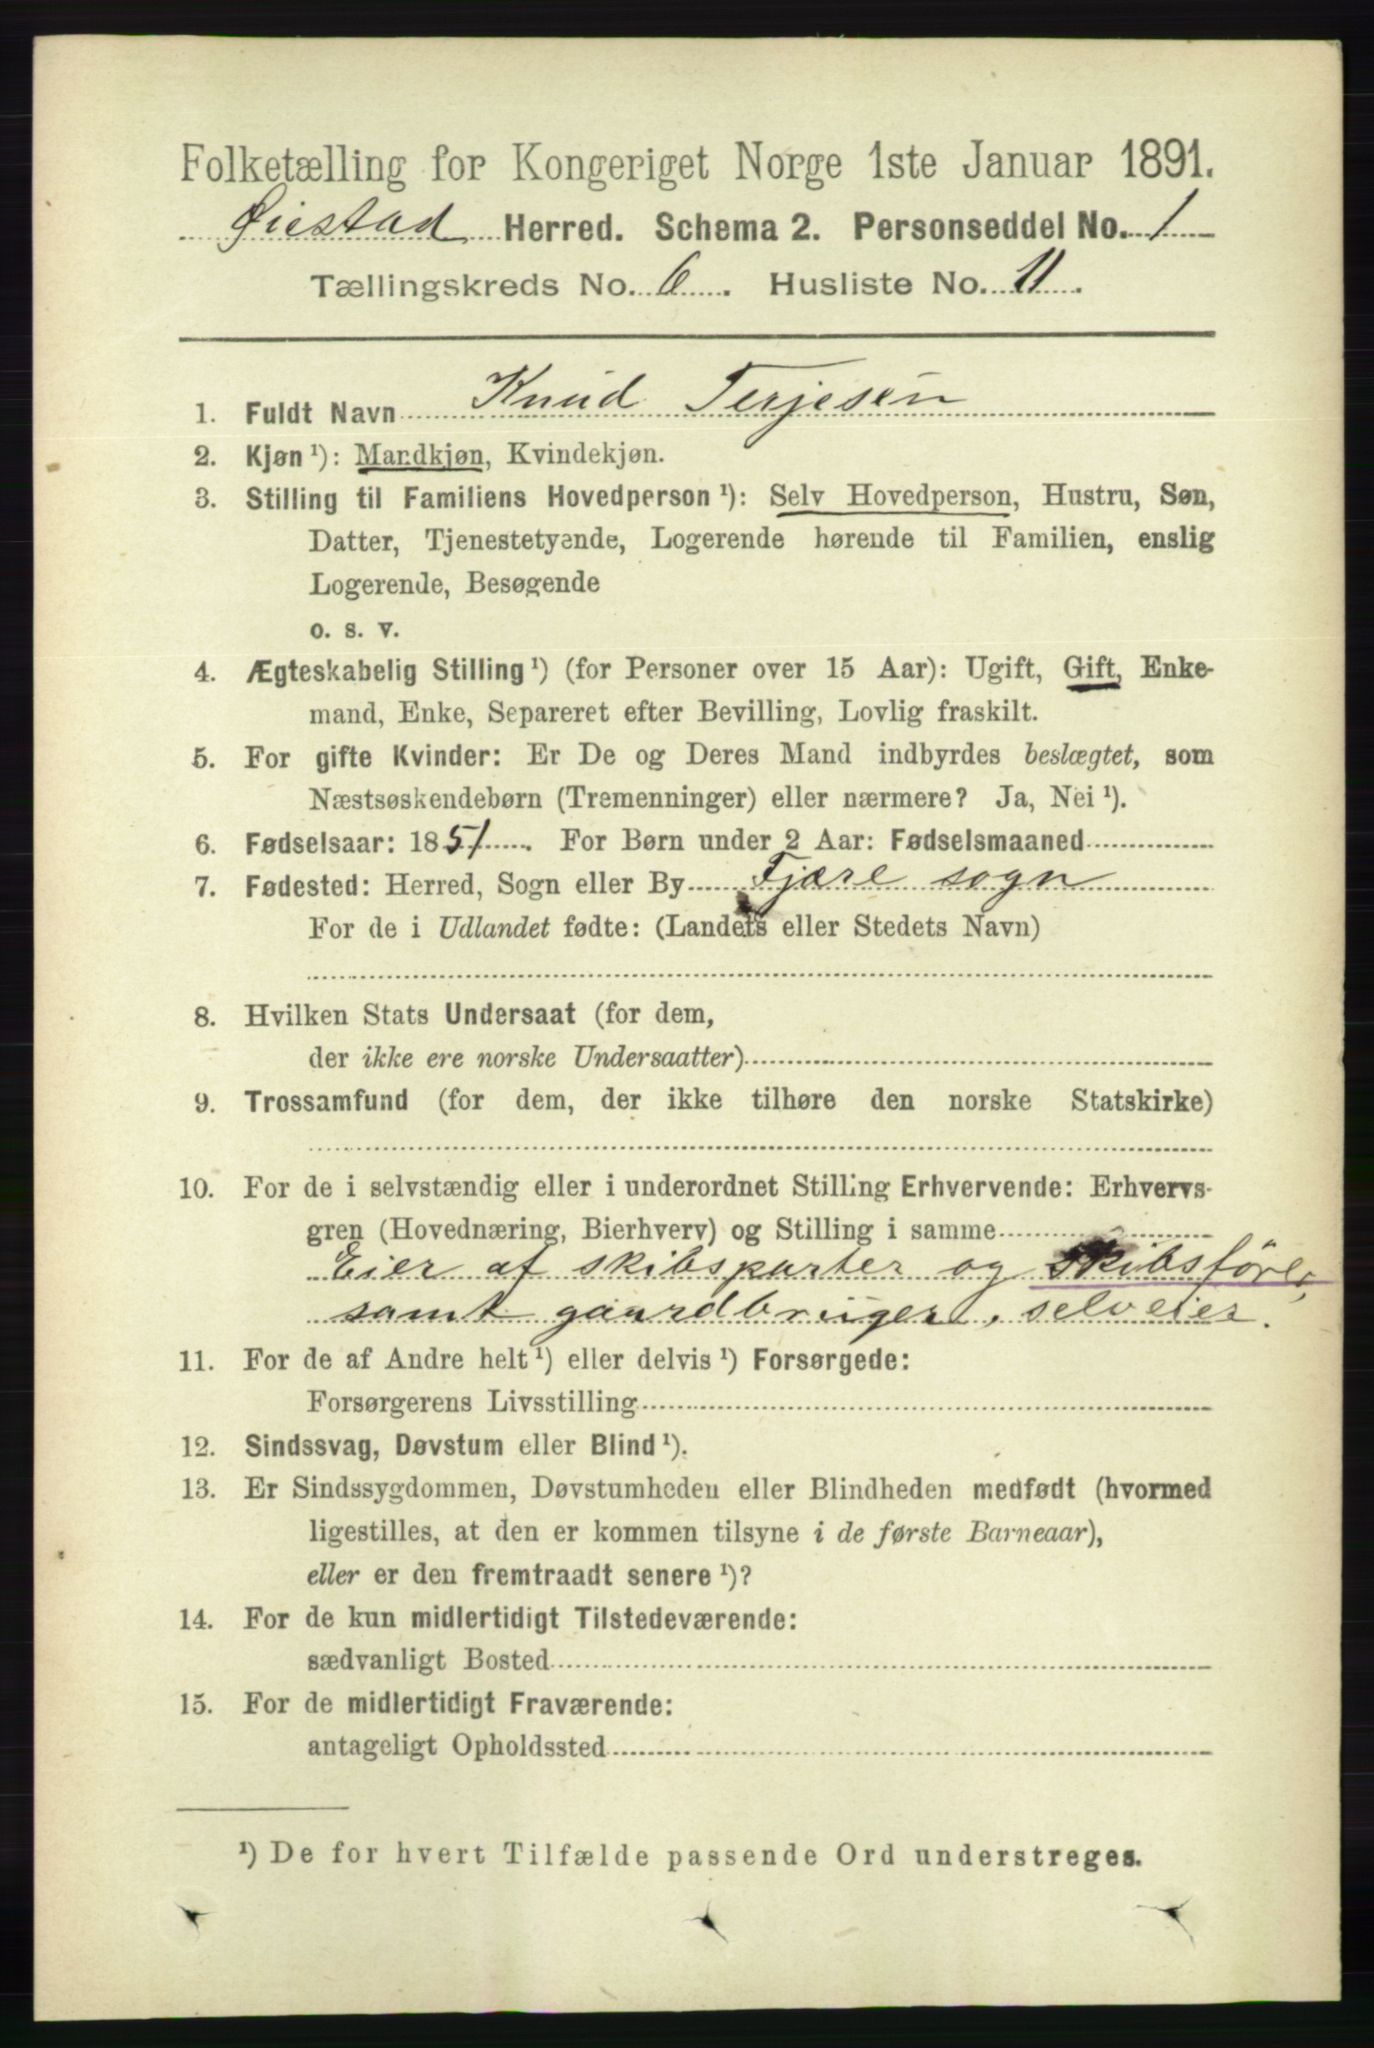 Folketælling for Kongeriget Norge 1ste Januar 1891.
Øiestad Herred. Schema 2. Personseddel No. 1
Tællingskreds No. 6. Husliste No. 11.
1. Fuldt Navn Knud Terjesen
2. Kjøn ¹): Mandkjøn, Kvindekjøn.
3. Stilling til Familiens Hovedperson ¹): Selv Hovedperson, Hustru, Søn,
Datter, Tjenestetyende, Logerende hørende til Familien, enslig
Logerende, Besøgende
o. s. v.
4. Ægteskabelig Stilling ¹) (for Personer over 15 Aar): Ugift, Gift, Enke-
mand, Enke, Separeret efter Bevilling, Lovlig fraskilt.
5. For gifte Kvinder: Er De og Deres Mand indbyrdes beslægtet, som
Næstsøskendebørn (Tremenninger) eller nærmere? Ja, Nei ¹).
6. Fødselsaar: 1851. For Børn under 2 Aar: Fødselsmaaned
7. Fødested: Herred, Sogn eller By Fjære sogn
For de i Udlandet fødte: (Landets eller Stedets Navn)
8. Hvilken Stats Undersaat (for dem,
der ikke ere norske Undersaatter)
9. Trossamfund (for dem, der ikke tilhøre den norske Statskirke)
10. For de i selvstændig eller i underordnet Stilling Erhvervende: Erhvervs-
gren (Hovednæring, Bierhverv) og Stilling i samme
Eier af skibsparter og skibsfører,
samt gaardbruger, selveier.
11. For de af Andre helt ¹) eller delvis ¹) Forsørgede:
Forsørgerens Livsstilling
12. Sindssvag, Døvstum eller Blind ¹).
13. Er Sindssygdommen, Døvstumheden eller Blindheden medfødt (hvormed
ligestilles, at den er kommen tilsyne i de første Barneaar),
eller er den fremtraadt senere ¹)?
14. For de kun midlertidigt Tilstedeværende:
sædvanligt Bosted
15. For de midlertidigt Fraværende:
antageligt Opholdssted
¹) De for hvert Tilfælde passende Ord understreges.